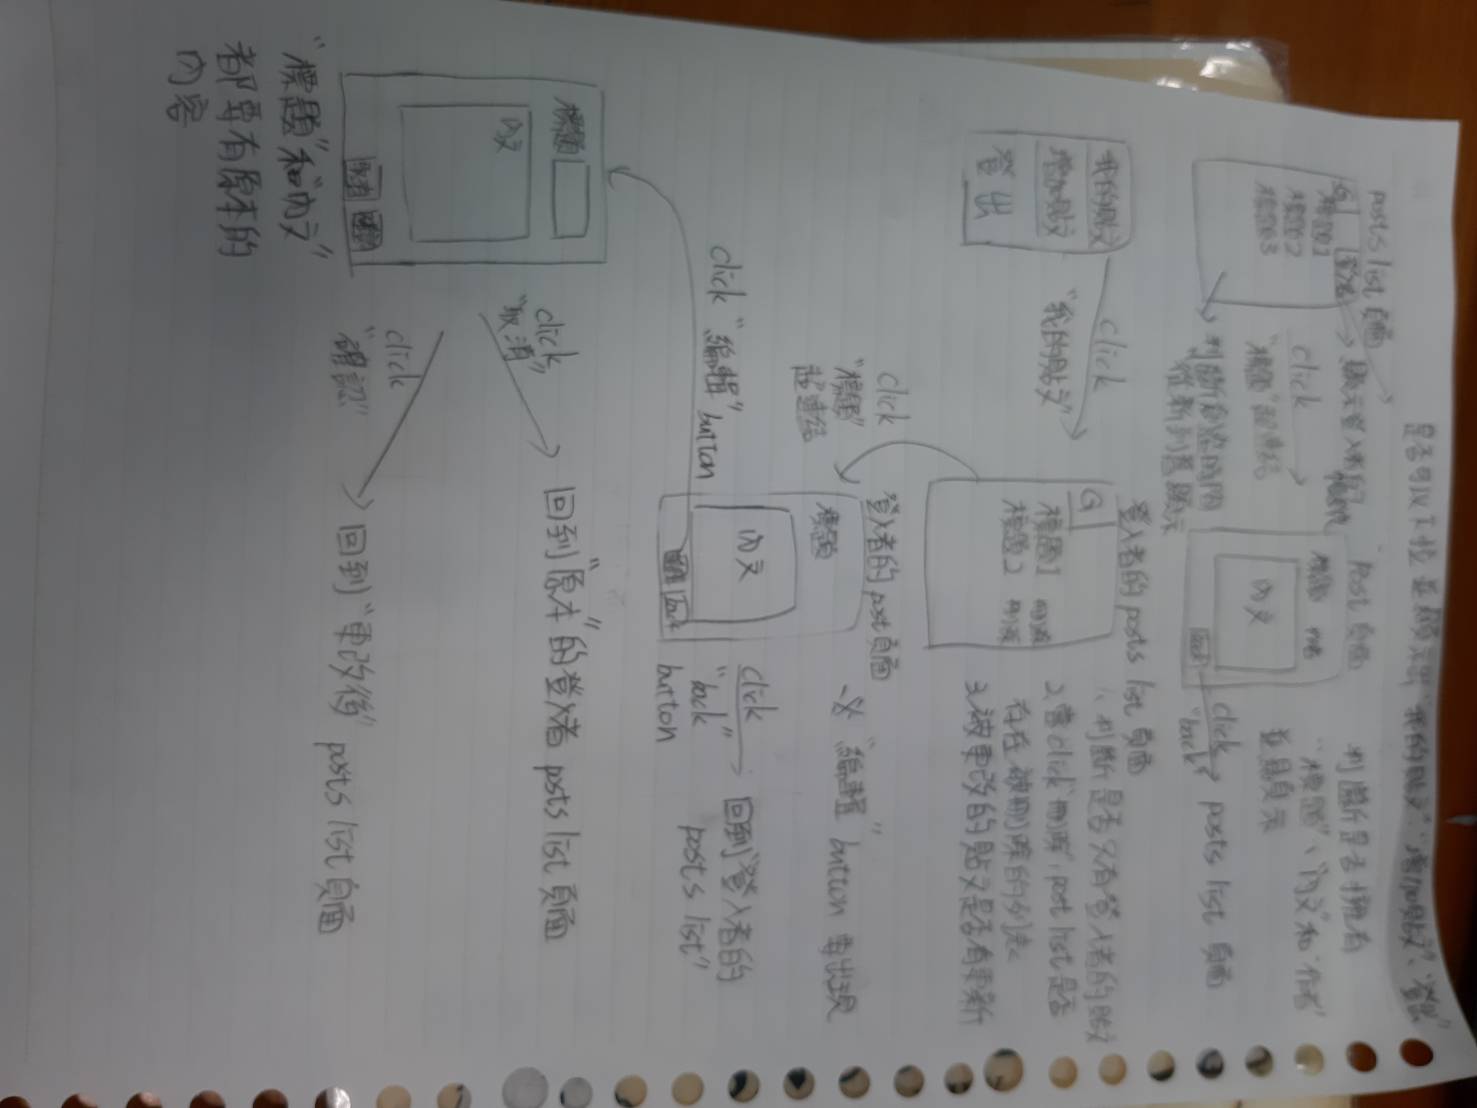 是否可以下拉並顯示出"我的貼文"、"增加貼文"、"登出"
posts list 頁面
標題1
標題2
標題3
顯示登入者的
click
"標題"超連結
判斷
從新到舊顯示
Post 頁面
標題 作者
內文
back
判斷是否擁有
"標題"、"內文"和"作者"
並顯示
click
"back"
posts list 頁面
我的貼文
增加貼文
登出
click
"我的貼文"
登入者的 posts list 頁面
標題1 刪除
標題2 刪除
1. 判斷是否只有登入者的貼文
2. 當click"刪除", post list是否
存在被刪除的列表
3. 被更改的貼文是否有更新
click
"標題"
超連結
登入者的 post 頁面
標題
內文
編輯 back
※ "編輯" button 要出現
click
"back"
button
回到"登入者的
posts list"
click "編輯" button
標題
內文
取消 確認
click
"取消"
回到"原本"的登入者 posts list 頁面
click
"確認"
回到"更改後" posts list 頁面
"標題"和"內文"
都要有原本的
內容